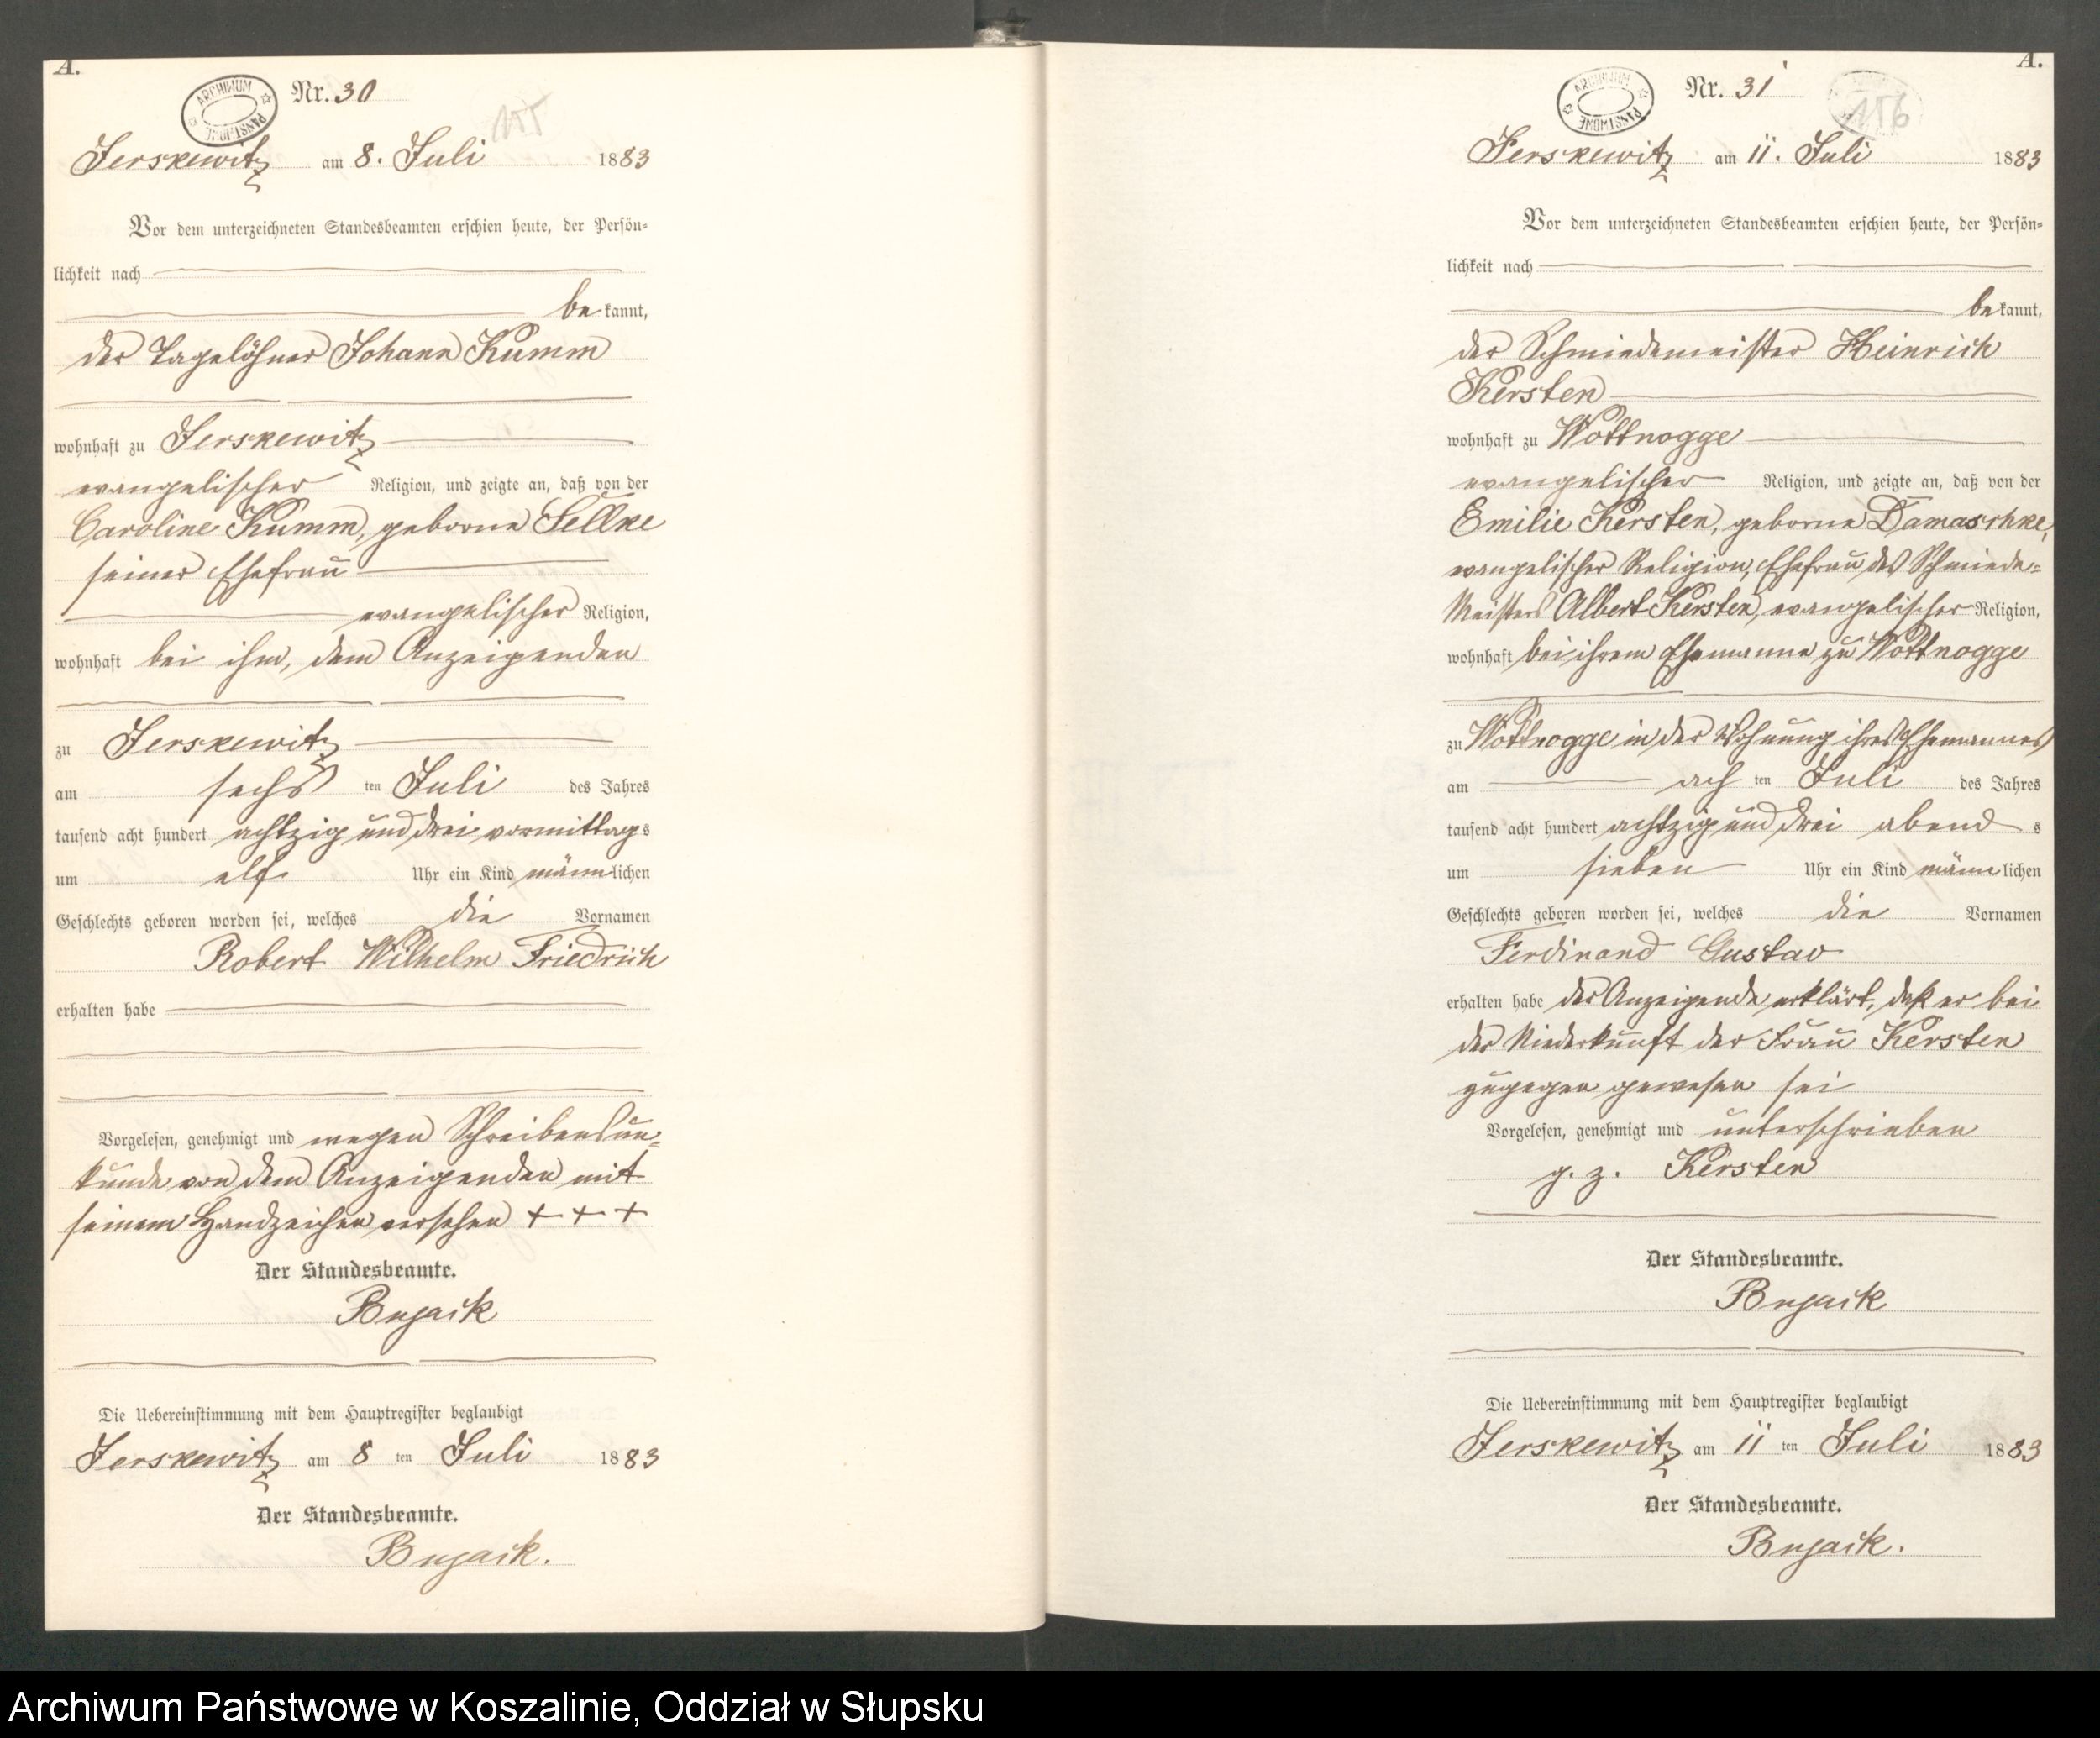 A.
ARCHIWUM PAŃSTWOWE
Nr. 30
155
Jerskewitz am 8. Juli 1883
Vor dem unterzeichneten Standesbeamten erschien heute, der Persön-
lichkeit nach
be kannt,
der Tagelöhner Johann Kumm
wohnhaft zu Jerskewitz
evangelischer Religion, und zeigte an, daß von der
Caroline Kumm, geborne Sellke
seiner Ehefrau
evangelischer Religion,
wohnhaft bei ihm, dem Anzeigenden
zu Jerskewitz
am sechs ten Juli des Jahres
tausend acht hundert achtzig und drei vormittag s
um elf Uhr ein Kind männ lichen
Geschlechts geboren worden sei, welches die Vornamen
Robert Wilhelm Friedrich
erhalten habe
Vorgelesen, genehmigt und wegen Schreibensun-
kunde von dem Anzeigenden mit
seinem Handzeichen versehen + + +
Der Standesbeamte.
Bujack
Die Uebereinstimmung mit dem Hauptregister beglaubigt
Jerskewitz am 8 ten Juli 1883
Der Standesbeamte.
Bujack.
A.
ARCHIWUM PAŃSTWOWE
Nr. 31
156
Jerskewitz am 11. Juli 1883
Vor dem unterzeichneten Standesbeamten erschien heute, der Persön-
lichkeit nach
be kannt,
der Schmiedemeister Heinrich
Kersten
wohnhaft zu Wottnogge
evangelischer Religion, und zeigte an, daß von der
Emilie Kersten, geborne Damaschke,
evangelischer Religion, Ehefrau des Schmiede-
Meisters Albert Kersten, evangelischer Religion,
wohnhaft bei ihrem Ehemanne zu Wottnogge
zu Wottnogge in der Wohnung ihres Ehemannes
am ach ten Juli des Jahres
tausend acht hundert achtzig und drei abend s
um sieben Uhr ein Kind männ lichen
Geschlechts geboren worden sei, welches die Vornamen
Ferdinand Gustav
erhalten habe der Anzeigende erklärt, daß er bei
der Niederkunft der Frau Kersten
zugegen gewesen sei
Vorgelesen, genehmigt und unterschrieben
g. z. Kersten
Der Standesbeamte.
Bujack
Die Uebereinstimmung mit dem Hauptregister beglaubigt
Jerskewitz am 11 ten Juli 1883
Der Standesbeamte.
Bujack.
Archiwum Państwowe w Koszalinie, Oddział w Słupsku